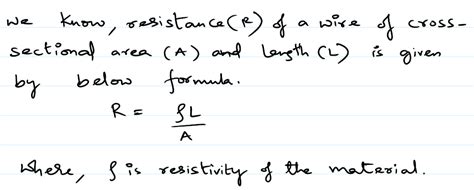 we know, resistance(R) of a wire of cross-
sectional area (A) and length (L) is given
by below formula.
R = ρL
A
where, ρ is resistivity of the material.